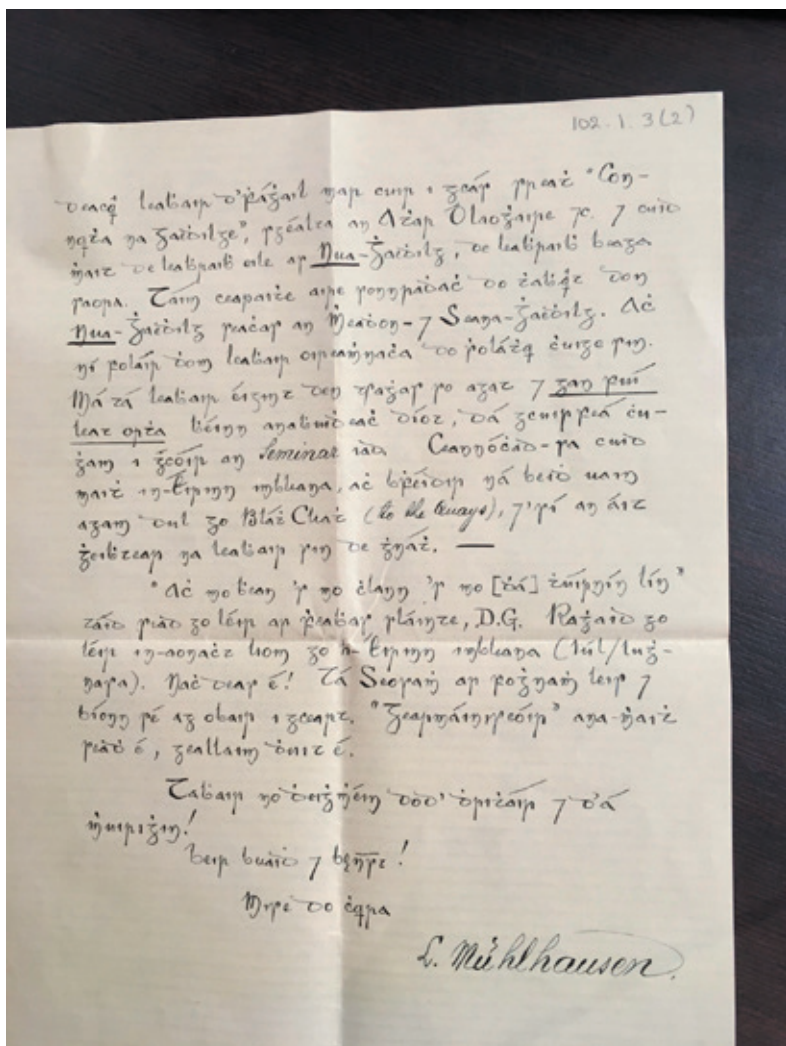 deacꝗ leaḃair d'ḟáġail mar cuir i gcás sreaṫ "Con-
nꝗṫa na Gaeḋilge", sgéalta an Aṫar Ó Laoġaire ⁊c. ⁊ cuid
ṁaiṫ de leaḃraiḃ eile ar Nua-Ġaeḋilg, de leaḃraiḃ beaga
saora. Táim ceapaiṫe aire sonnráḋaċ do ṫaḃꝗt don
Nua-Ġaeḋilg seaċas an Ṁeaḋon-⁊ Seana-Ġaeḋilg. Aċ
ní foláir ḋom leaḃair oireaṁnaċa do ṡoláṫꝗ ċuige sin.
Má tá leaḃair éigint den tsaġas so agat ⁊ gan
leat orṫa ḃéinn anaḃuiḋeaċ díot, dá gcuirfeá ċu-
ġam i gcóir an Seminar iad. Ceannóċad-sa cuid
ṁaiṫ in-Éirinn imbliana, aċ b'ḟéidir ná beiḋ uain
agam dul go Bláṫ Cliaṫ (to the Quays), ⁊'sí an áit
ġeiḃtear na leaḃair sin de ġnáṫ. —
"Aċ mo ḃean 's mo ċlann 's mo [ḋá] ṫúirnín lín"
táid siad go léir ar ḟeaḃas sláinte, D.G. Raġaid go
léir in-aonaċt liom go h-Éirinn imbliana (Iúl/Luġ-
nasa). Naċ deas é! Tá Seosaṁ ar foġnaṁ leis ⁊
bíonn sé ag obair i gceart. "Gearmáinseóir" ana-ṁait
seaḋ é, geallaim ḋuit é.
Taḃair mo ḋeiġṁéin dod' ḋritáir ⁊ d'á
ṁuiriġin!
Beir buaiḋ ⁊ beṅṅċt!
Mise do ċꝗa
L. Mühlhausen.
102.1.3(2)